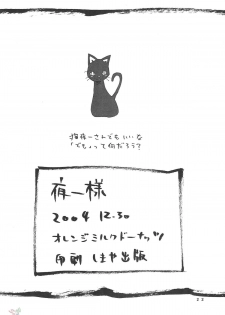 猫夜一さんでもいいな
「でちょ」って何だろう？
夜一様
2004 12.30
オレンジミルクドーナッツ
印刷 しまや出版